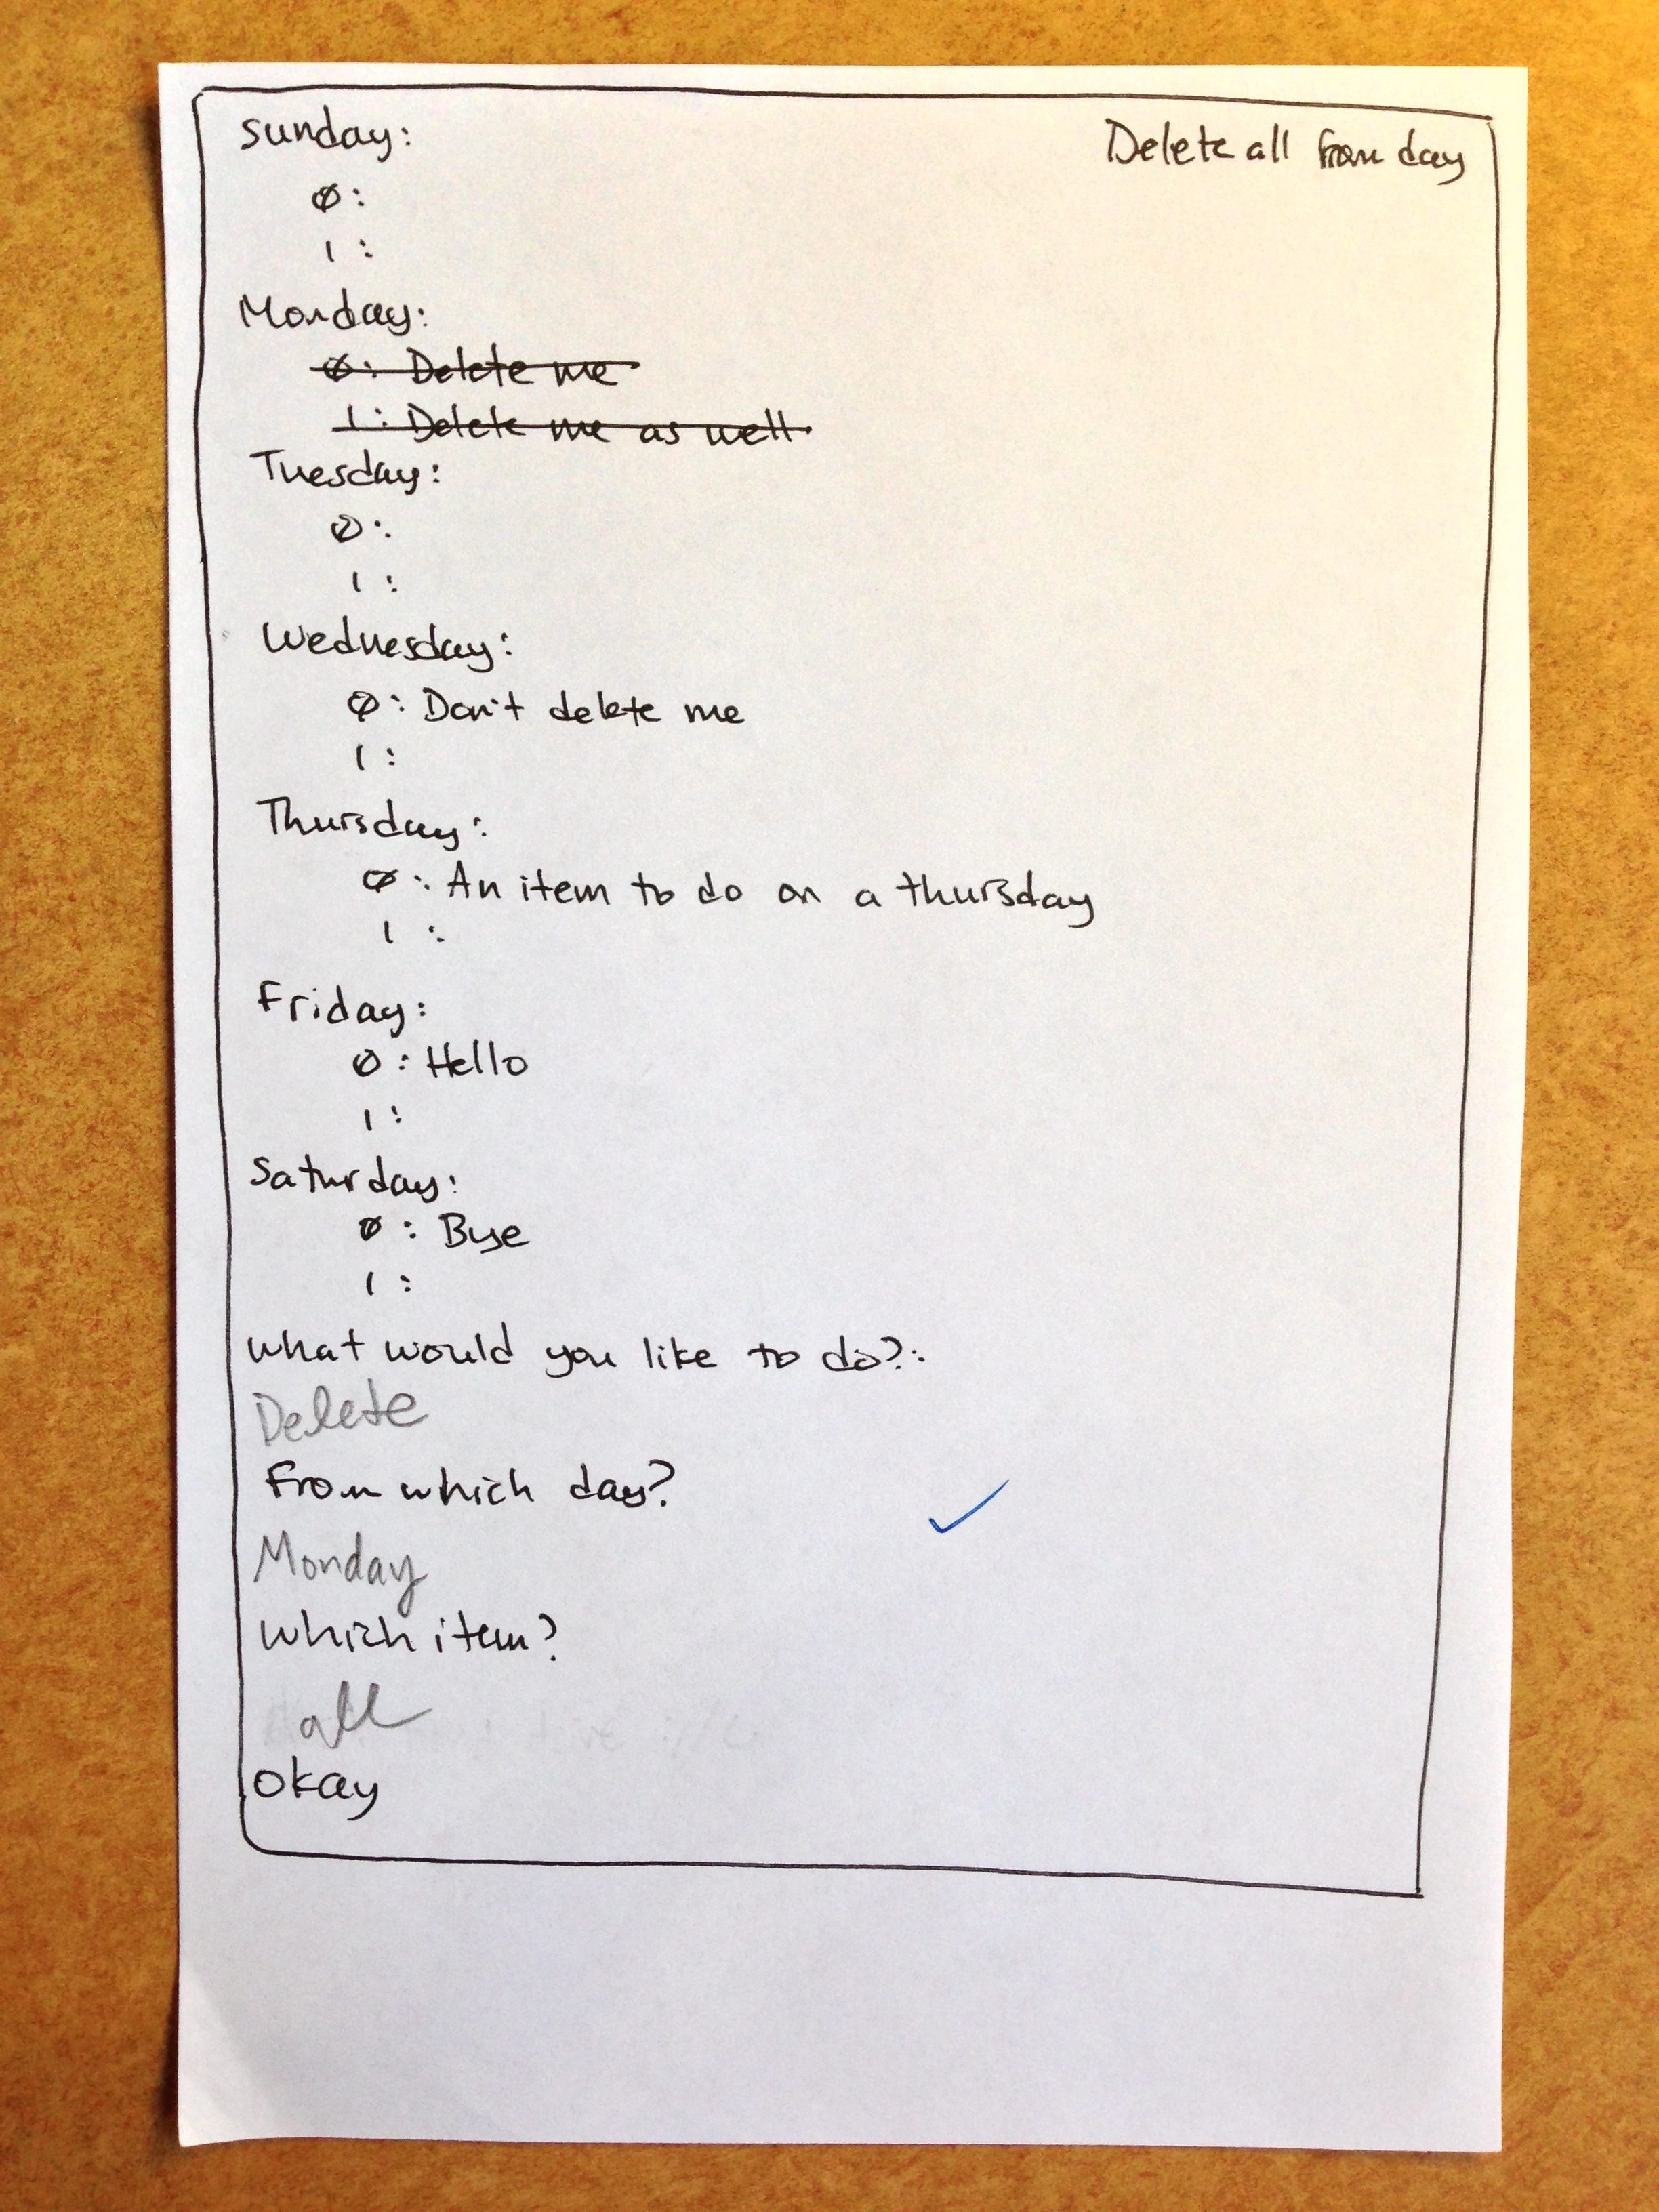 Sunday:
Delete all from day
0:
1:
Monday:
0: Delete me
1: Delete me as well
Tuesday:
0:
1:
Wednesday:
0: Don't delete me
1:
Thursday:
0: An item to do on a thursday
1:
Friday:
0: Hello
1:
Saturday:
0: Bye
1:
What would you like to do?:
Delete
From which day?
Monday
Which item?
all
Okay